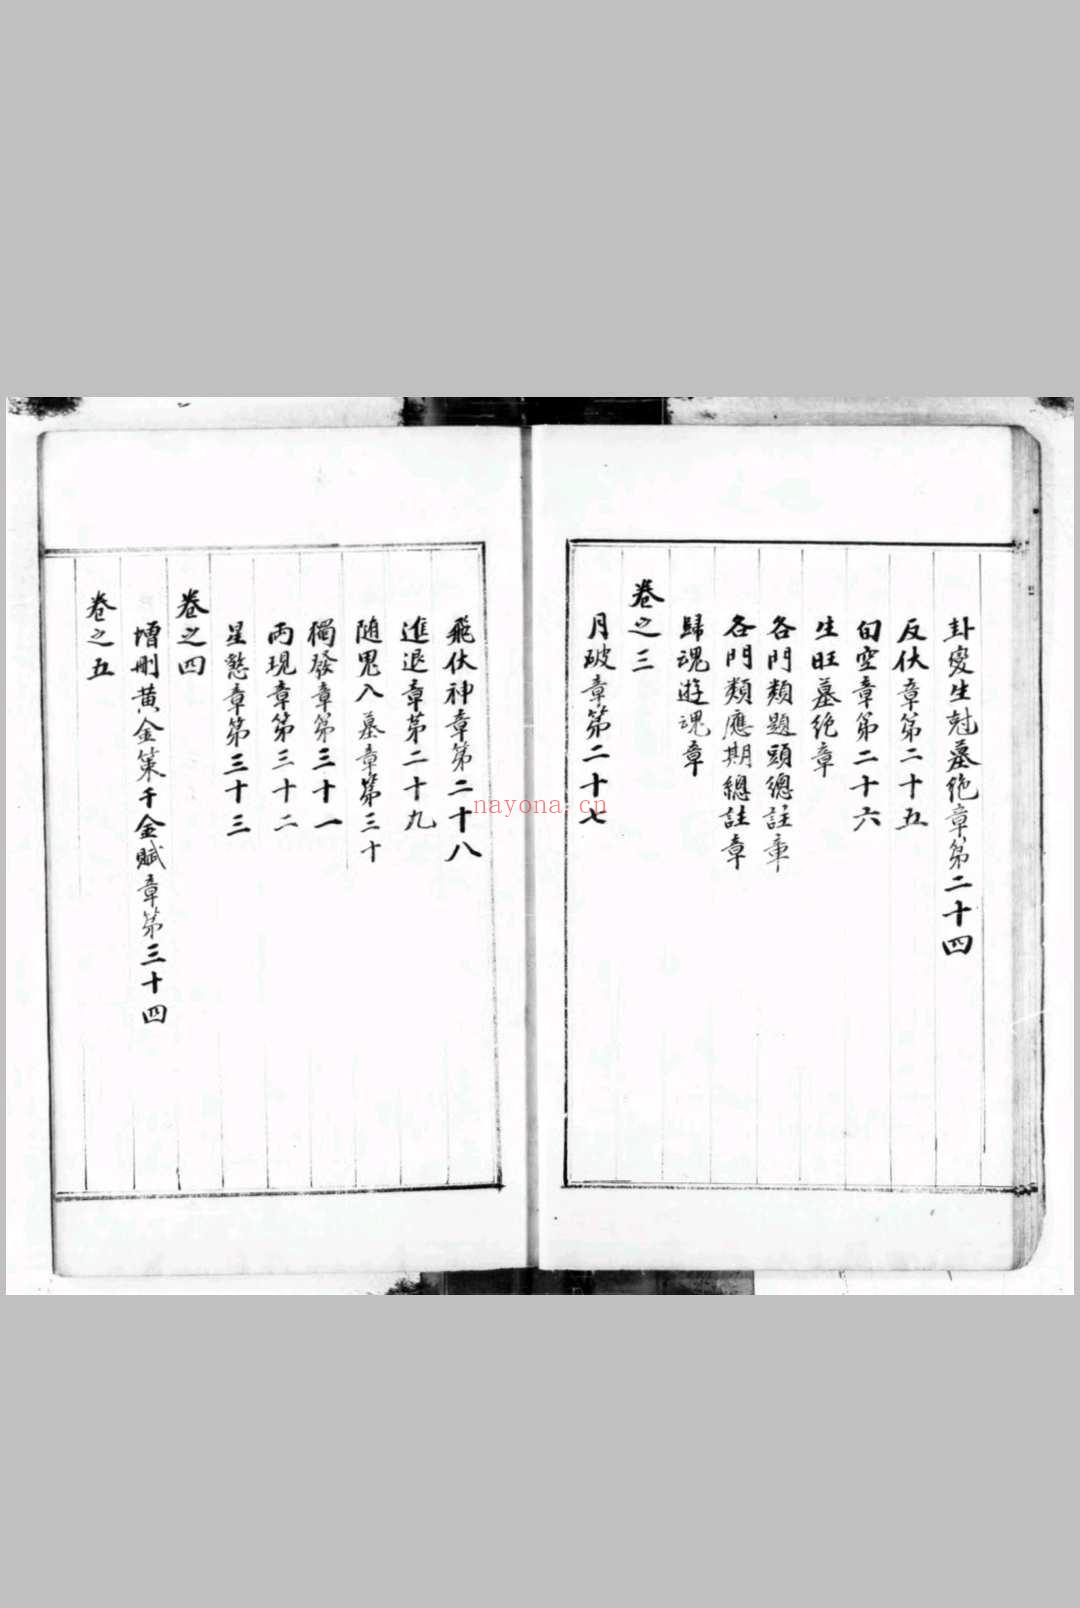 卦變生尅墓絶章第二十四
反伏章第二十五
旬空章第二十六
生旺墓絶章
各門類題頭總註章
各門類應期總註章
歸魂遊魂章
卷之三
月破章第二十七
飛伏神章第二十八
進退章第二十九
随鬼入墓章第三十
獨發章第三十一
兩現章第三十二
星煞章第三十三
卷之四
增刪黃金策千金賦章第三十四
卷之五
nayona.cn